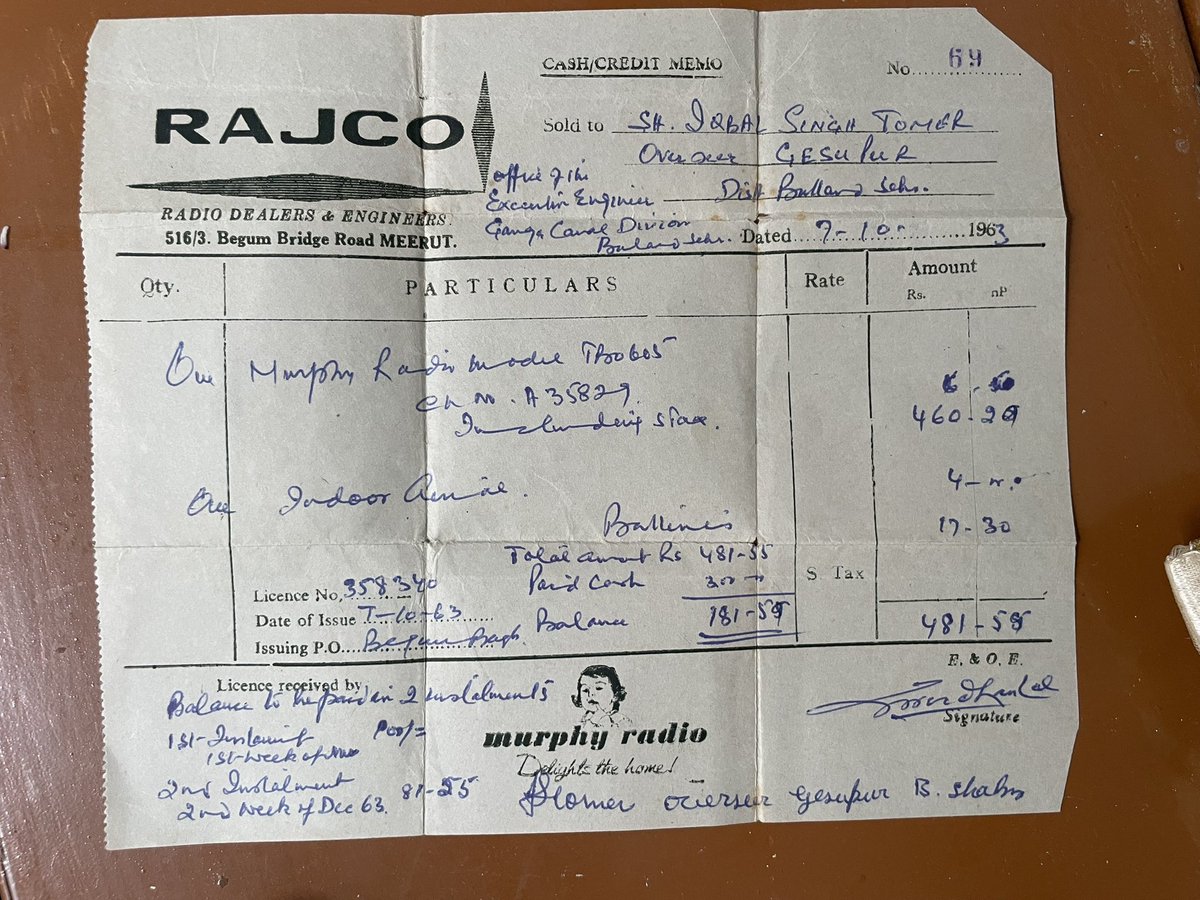 CASH/CREDIT MEMO
No. 69
RAJCO
RADIO DEALERS & ENGINEERS.
516/3. Begum Bridge Road MEERUT.
Sold to SH. IQBAL SINGH TOMER
Overseer GESUPUR
Dist Bulland Sehr.
Office of the
Executive Engineer
Ganga Canal Division
Buland Sehr.
Dated 7-10- 1963
Qty. PARTICULARS Rate Amount
Rs. nP
One Murphy Radio Model TB0605
Ch No. A 35829.
Including S Tax. 460-2
One Indoor Aerial. 4-
Batteries 17-30
Total amount Rs 481-55
Paid Cash 300-
Balance 181-55
S Tax
481-55
Licence No. 358340
Date of Issue 7-10-63
Issuing P.O. Begum Bagh.
Licence received by
Balance to be paid in 2 instalments
1st- Instalment
1st- week of
2nd Instalment 81-55
2nd week of Dec 63.
murphy radio
Delights the home!
E. & O. E.
Signature
overseer Gesupur B. Shahr